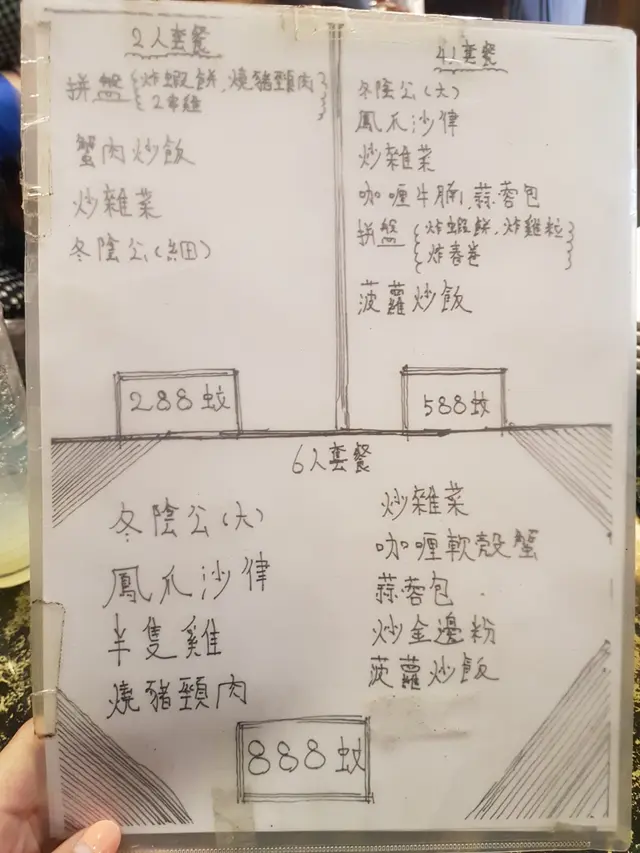 2人套餐
拼盤{炸蝦餅,燒豬頸肉
2串雞}
蟹肉炒飯
炒雜菜
冬陰公(細)
288蚊
4人套餐
冬陰公(大)
鳳爪沙律
炒雜菜
咖喱牛腩,蒜蓉包
拼盤{炸蝦餅,炸雞粒
炸春卷}
菠蘿炒飯
588蚊
6人套餐
冬陰公(大)
鳳爪沙律
半隻雞
燒豬頸肉
炒雜菜
咖喱軟殼蟹
蒜蓉包
炒金邊粉
菠蘿炒飯
888蚊